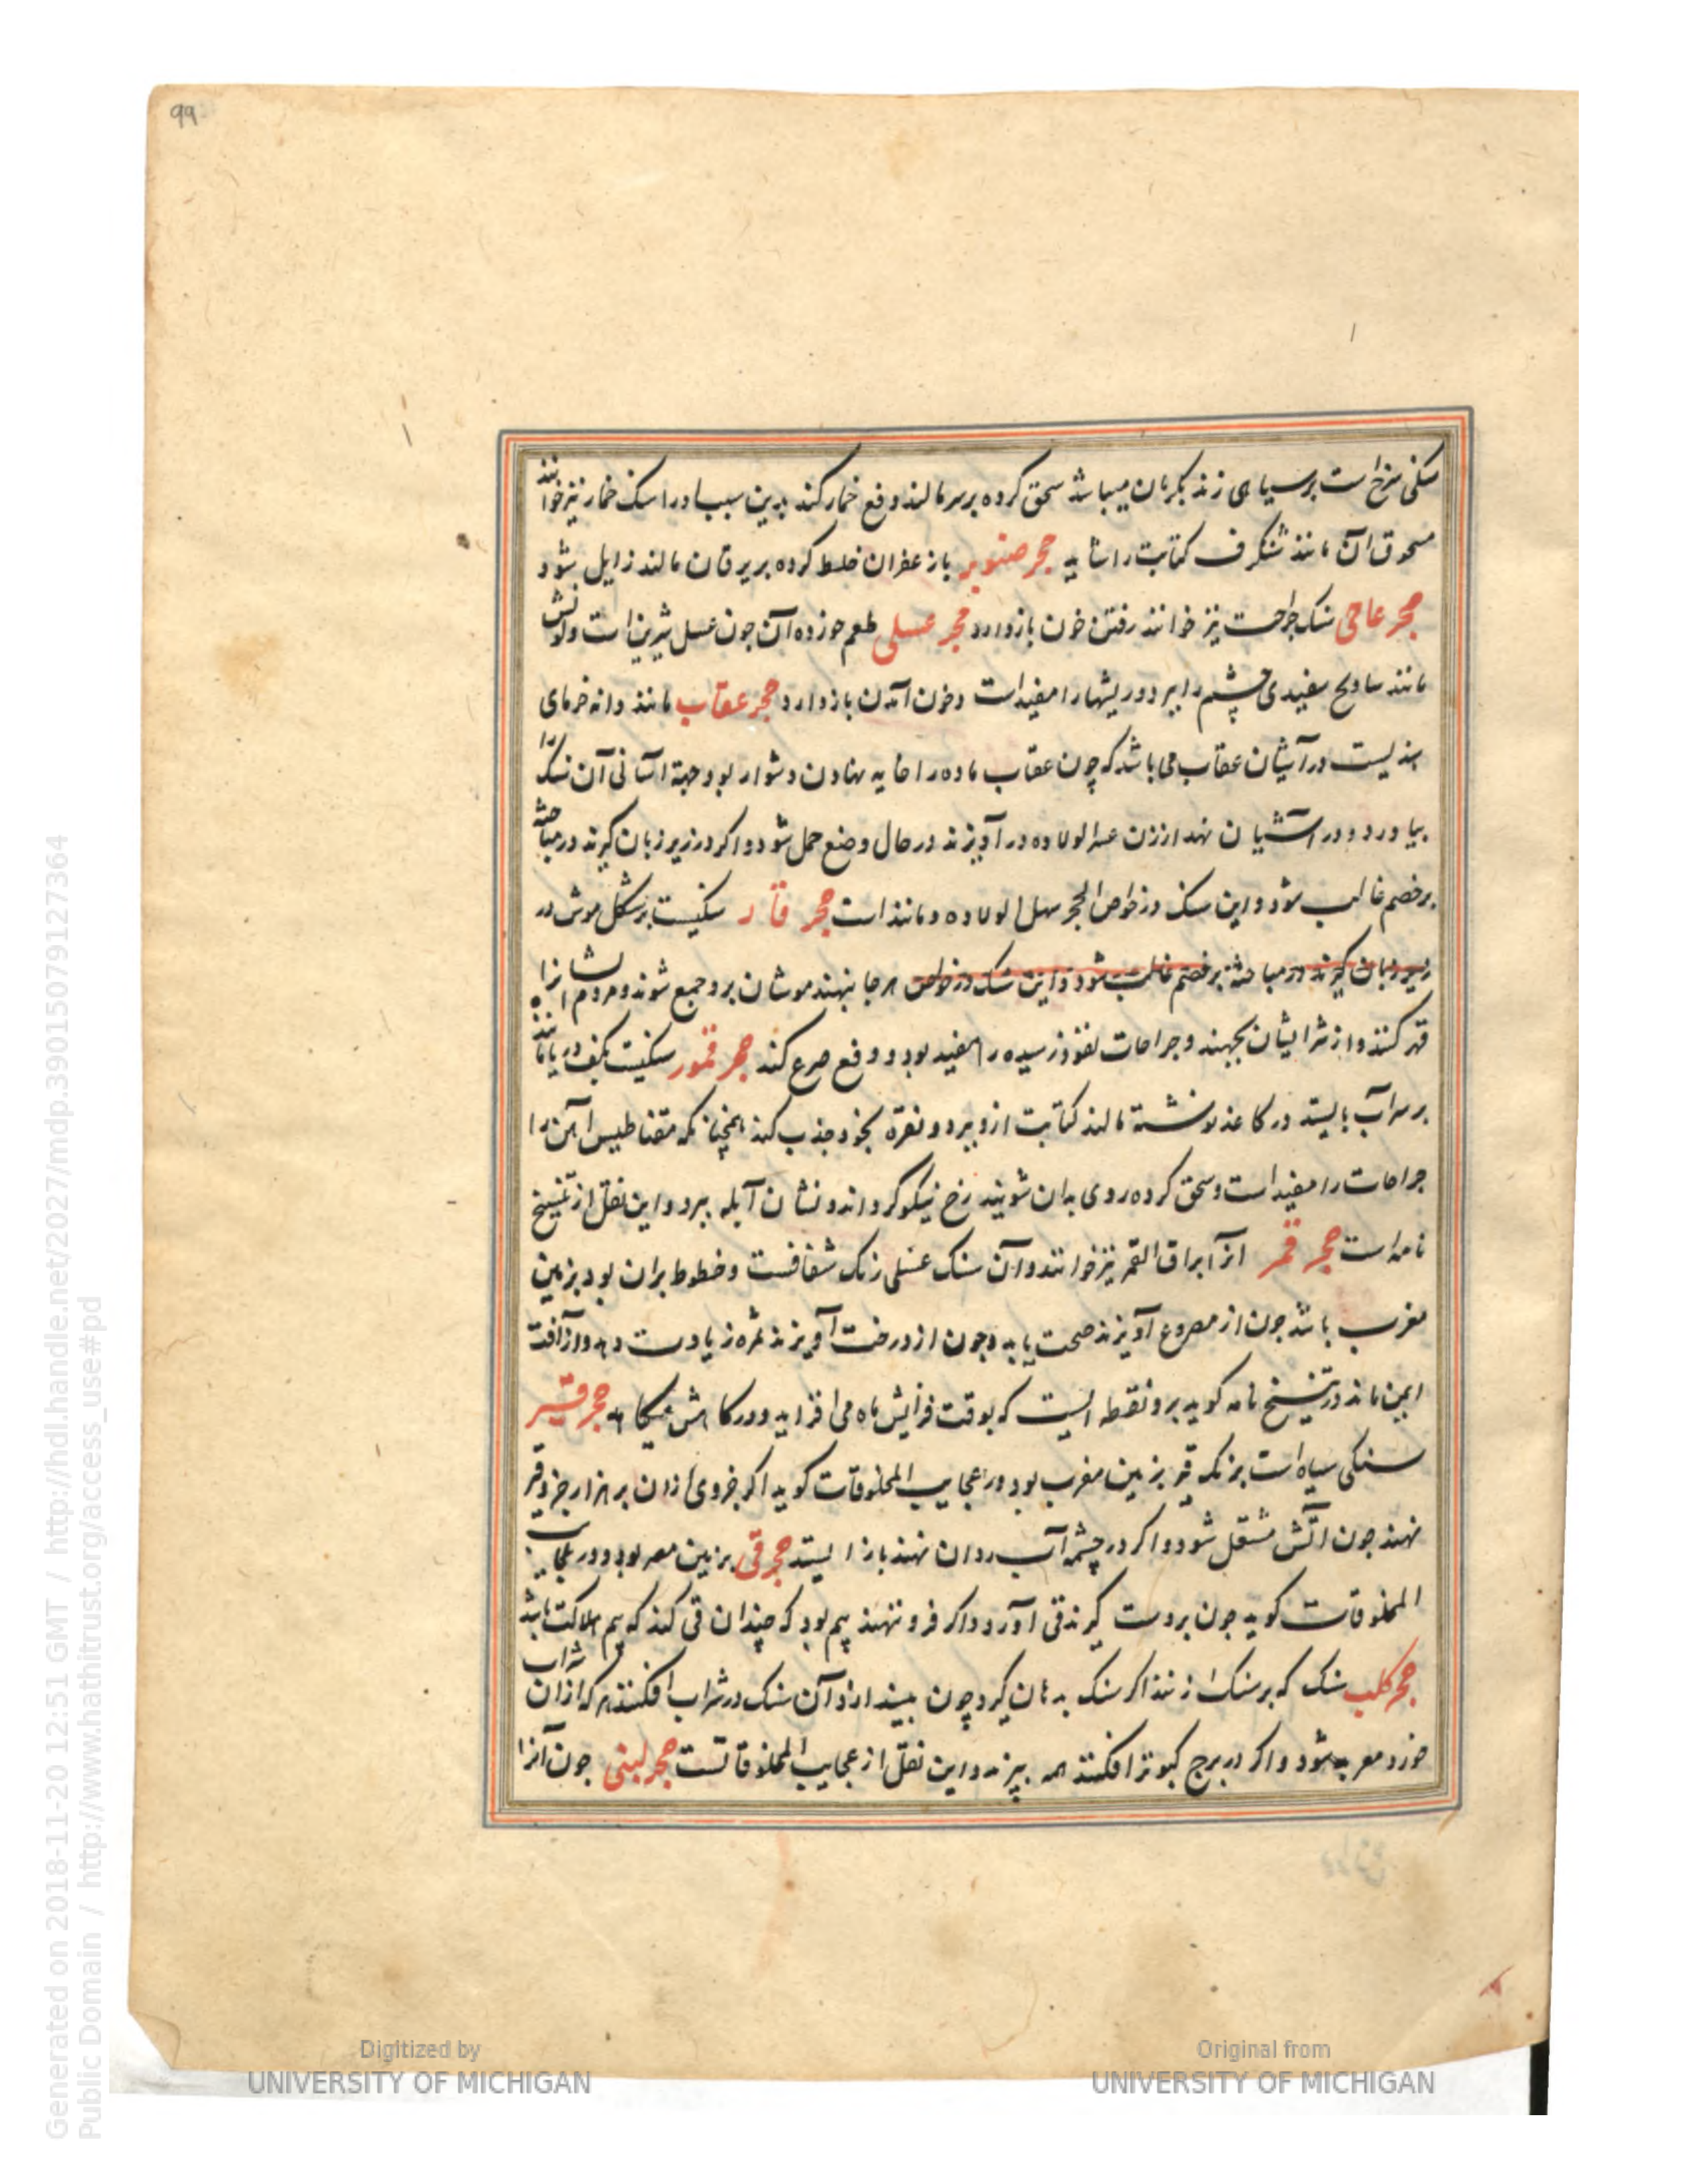 99
سنکی سرخ است بر سیاهی زند بکرمان میباشد سحق کرده بر سر مالند دفع خمار کند بدین سبب او را سنک خمار نیز خوانند
مسحوق آن مانند شنکرف کتابت را شاید حجر صنوبر با زعفران خلط کرده بر یرقان مالند زایل شود
حجر عاجی سنک جراحت نیز خوانند رفتن خون باز دارد حجر عسلی طعم خورده آن چون عسل شیرین است و لونش
مانند سادنج سفیدی چشم را ببرد و ریشها را مفید است و خون آمدن باز دارد حجر عقاب مانند دانه خرمای
هندیست در آشیان عقاب می باشد که چون عقاب ماده را خایه نهادن دشوار بود جهة آسانی آن سنک را
بیاورد و در آشیان نهد از زن عسر الولاده در آویزند در حال وضع حمل شود و اکر در زیر زبان کیرند در مباحثه
بر خصم غالب شود و این سنک در خواص الحجر سهل الولاده و مانند است حجر فار سنکیست بر شکل موش در
زیر زبان کیرند در مباحثه بر خصم غالب شود و این سنک در خواص هر جا بنهند موشان برو جمع شوند و مردم ایشانرا
قهر کنند و از شر ایشان بجهند و جراحات نفوذ رسیده را مفید بود و دفع صرع کند حجر قمور سنکیست بکف دریا ماند
بر سر آب بایستد در کاغذ نوشته مالند کتابت ازو ببرد و نقره بخود جذب کند همچنانکه مقناطیس آهن را
جراحات را مفید است و سحق کرده روی بدان شویند رخ نیکو کرداند و نشان آبله ببرد و این نقل از تنسیخ
نامه است حجر قمر انرا براق القمر نیز خوانند و آن سنک عسلی رنک شفافست و خطوط بران بود بزمین
مغرب باشد چون از مصروع آویزند صحت یابد و چون از درخت آویزند ثمره زیادت دهد و از آفت
ایمن ماند در تنسیخ نامه کوید برو نقطه ایست که بوقت فزایش ماه می افزاید و در کاهش میکاهد حجر قیر
سنکی سیاه است برنک قیر بزمین مغرب بود در عجایب المخلوقات کوید اکر جزوی ازان بر هزار جزو قیر
نهند چون آتش مشتعل شود و اکر در چشمه آب روان نهند باز ایستد حجر قی بزمین مصر بود و در عجایب
المخلوقات کوید چون بر دست کیرند قی آورد و اکر فرو ننهند بیم بود که چندان قی کند که بیم هلاکت باشد
حجر کلب سنک که بر سنک زنند اکر سنک بدهان کیرد و چون بیندازد آن سنک در شراب افکنند هر که ازان شراب
خورد معربد شود و اکر در برج کبوتر افکنند همه بپرند و این نقل از عجایب المخلوقاتست حجر لبنی چون آنرا
Generated on 2018-11-20 12:51 GMT / http://hdl.handle.net/2027/mdp.39015079127364
Public Domain / http://www.hathitrust.org/access_use#pd
Digitized by
UNIVERSITY OF MICHIGAN
Original from
UNIVERSITY OF MICHIGAN